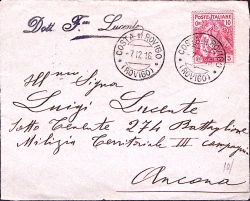 Dott. F. Lucente
COSTA DI ROVIGO
-7.12.16
(ROVIGO)
COSTA DI ROVIGO
(ROVIGO)
POSTE ITALIANE
10
Sig. Signor
Luigi Lucente
Sotto Tenente 274 Battaglione
Milizia Territoriale III compagnia
Ancona